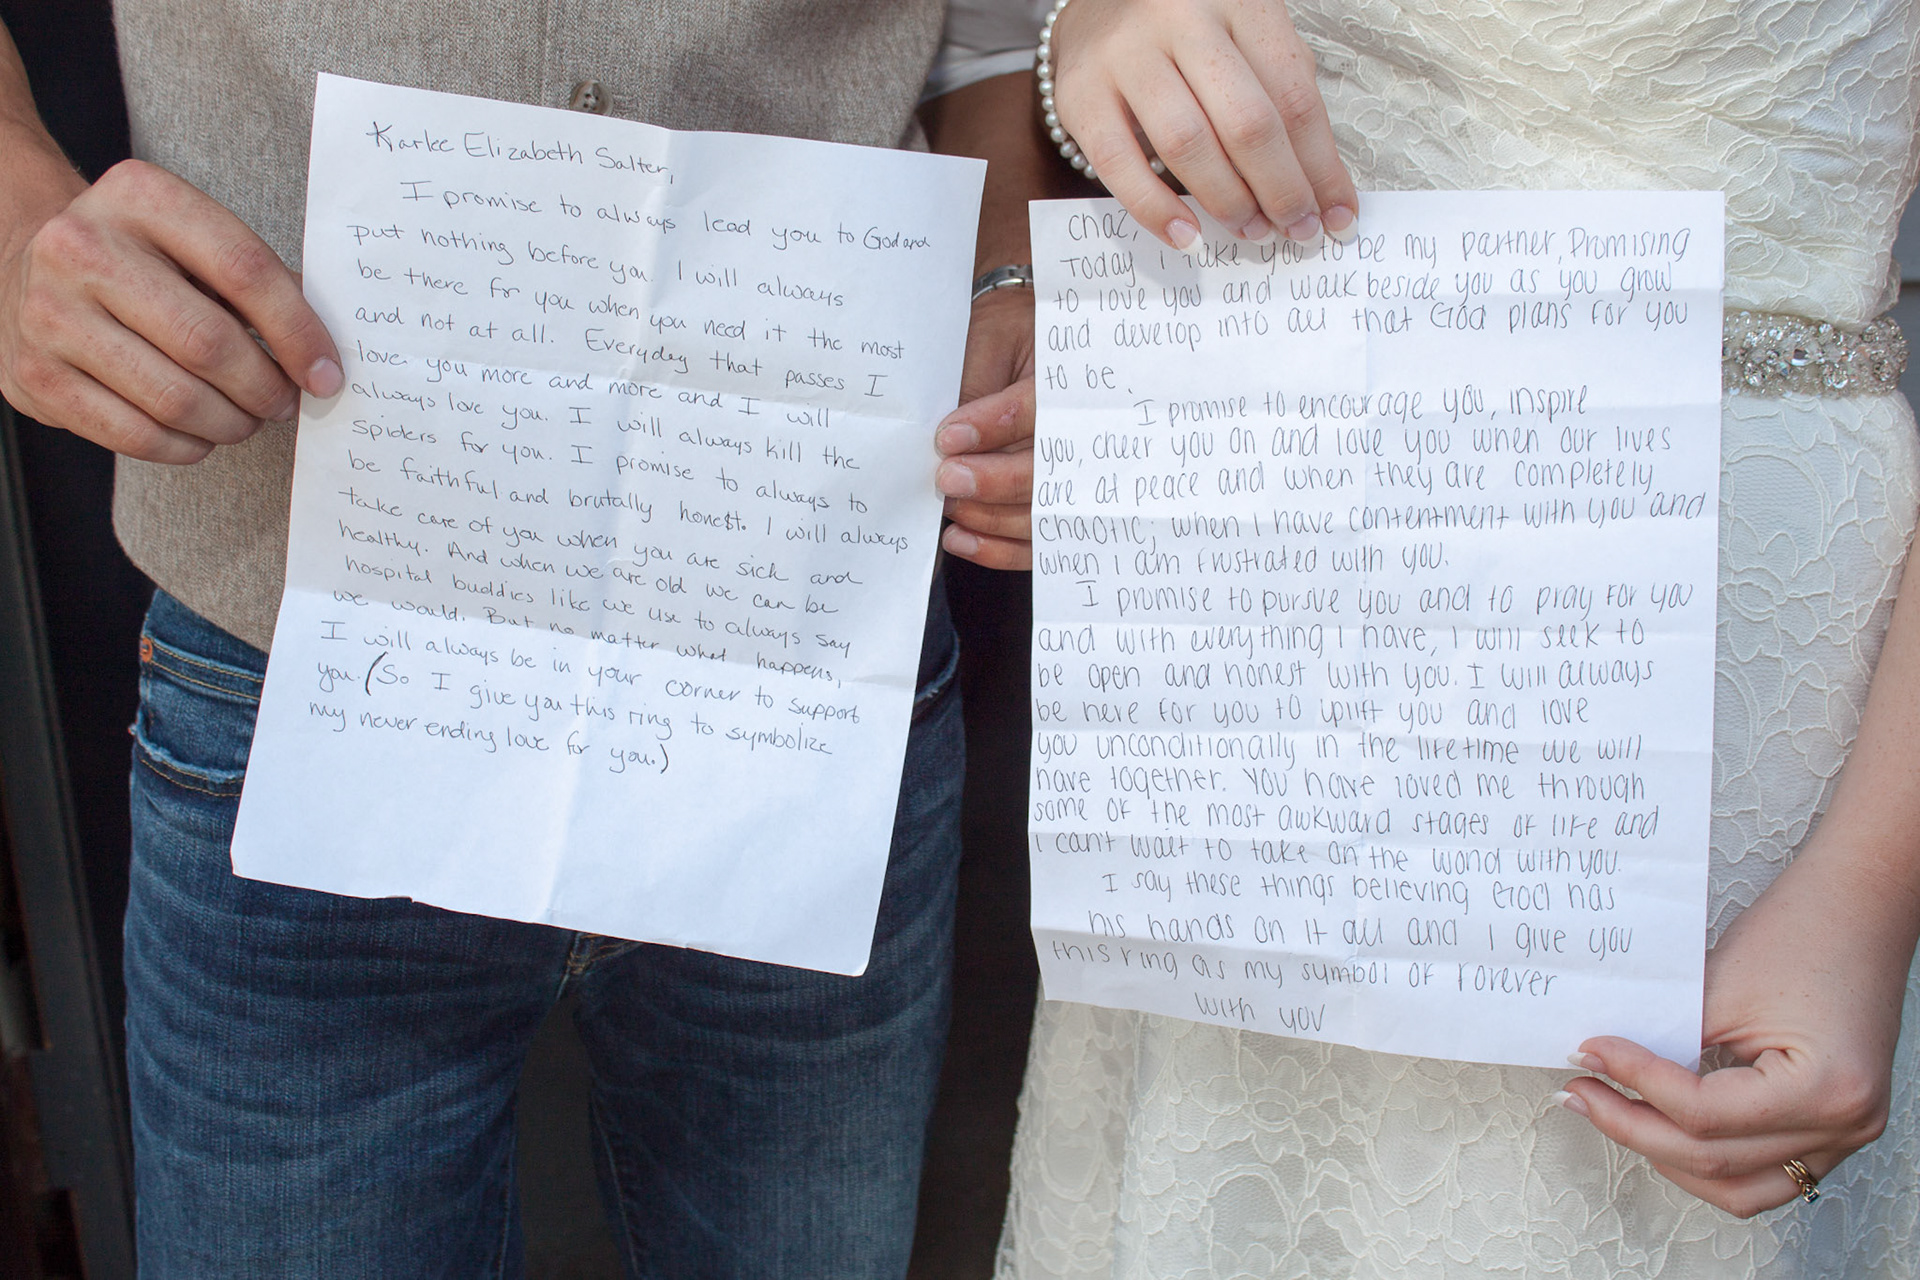 Karlee Elizabeth Salter,
I promise to always lead you to God and
put nothing before you. I will always
be there for you when you need it the most
and not at all. Everyday that passes I
love you more and more and I will
always love you. I will always kill the
spiders for you. I promise to always to
be faithful and brutally honest. I will always
take care of you when you are sick and
healthy. And when we are old we can be
hospital buddies like we use to always say
we would. But no matter what happens,
I will always be in your corner to support
you. (So I give you this ring to symbolize
my never ending love for you.)
Chaz,
Today I take you to be my partner, Promising
to love you and walk beside you as you grow
and develop into all that God plans for you
to be.
I promise to encourage you, inspire
you, cheer you on and love you when our lives
are at peace and when they are completely
chaotic; when I have contentment with you and
when I am frustrated with you.
I promise to pursue you and to pray for you
and with everything I have, I will seek to
be open and honest with you. I will always
be here for you to uplift you and love
you unconditionally in the lifetime we will
have together. You have loved me through
some of the most awkward stages of life and
I can't wait to take on the world with you.
I say these things believing God has
his hands on it all and I give you
this ring as my symbol of forever
with you